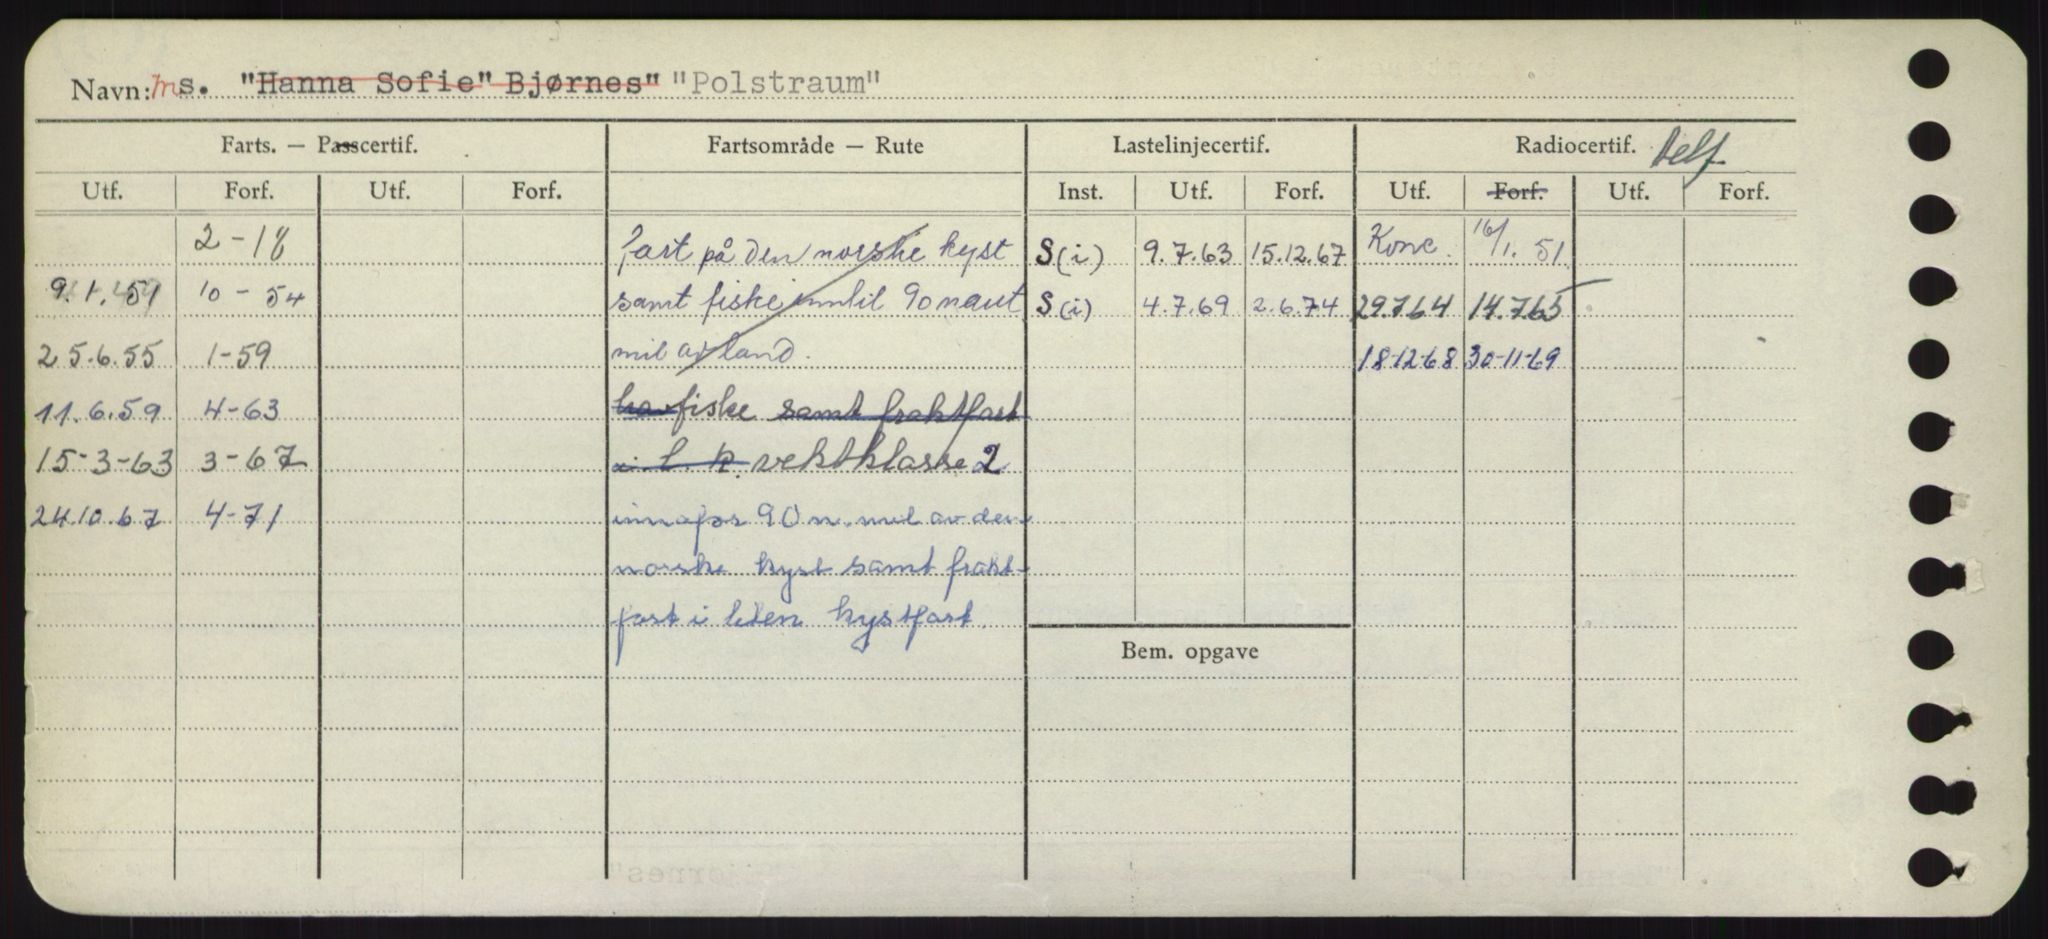 Navn: ms. "Hanna Sofie" Bjørnes" "Polstraum"
Farts. — Passcertif. Fartsområde — Rute Lastelinjecertif. Radiocertif. Telf
Utf. Forf. Utf. Forf. Inst. Utf. Forf. Utf. Forf. Utf. Forf.
2-18 fart på den norske kyst S(i) 9.7.63 15.12.67 Konc. 16/1.51
9.1.51 10-54 samt fiske inntil 90 naut S(i) 4.7.69 2.6.74 29.7.64 14.7.65
25.6.55 1-59 mil av land. 18-12-68 30-11-69
11.6.59 4-63 havfiske samt fraktfart
15-3-63 3-67 i l. k. vektklasse 2
24.10.67 4-71 innafor 90 n. mil av den
norske kyst samt frakt-
fart i liten kystfart.
Bem. opgave